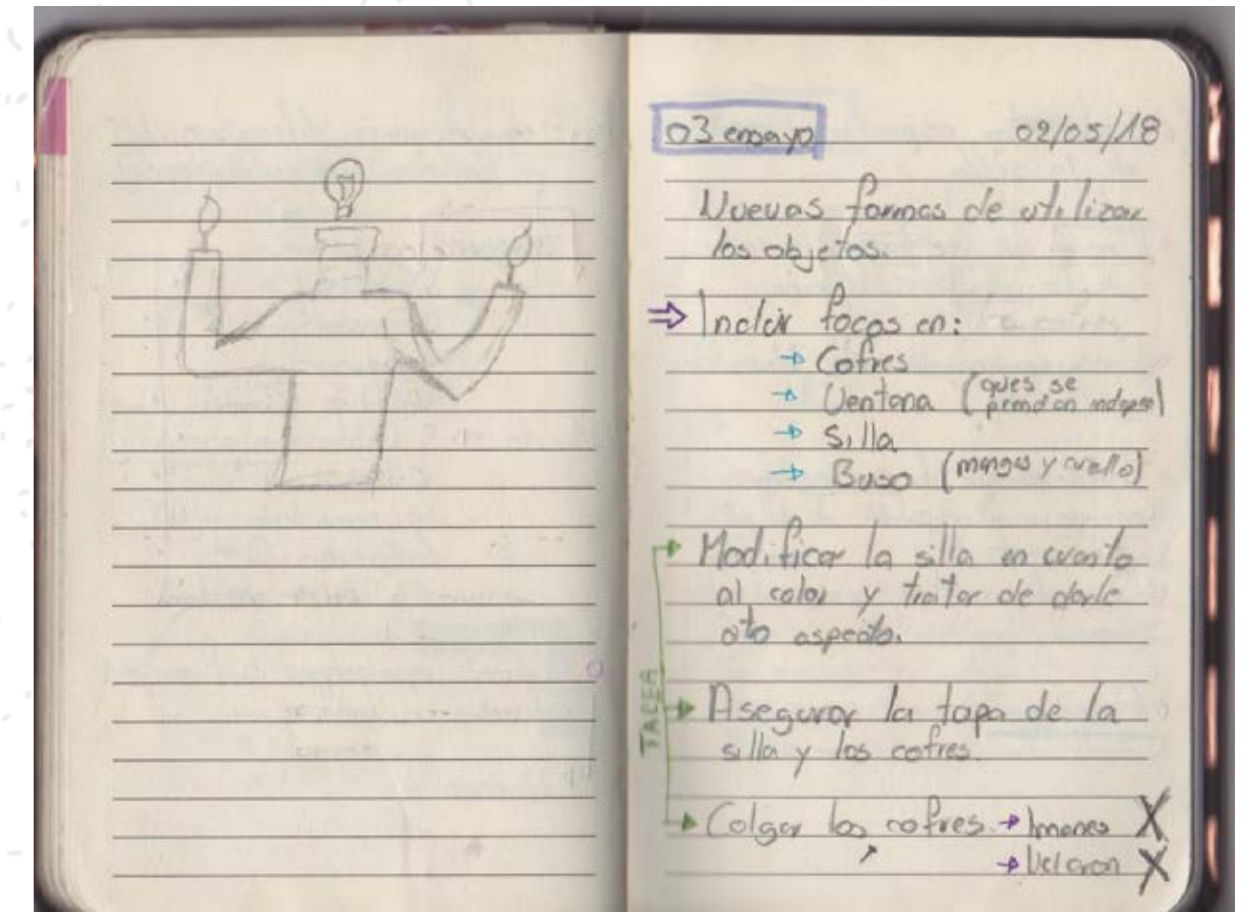 03 ensayo
02/05/18
Nuevas formas de utilizar
los objetos.
⇒ Incluir focos en:
→ Cofres
→ Ventana (ques se
prendan indepen)
→ Silla
→ Buso (mangas y cuello)
TAREA
→ Modificar la silla en cuanto
al color y tratar de darle
otro aspecto.
→ Asegurar la tapa de la
silla y los cofres.
→ Colgar los cofres. → Imanes X
→ Velcron X